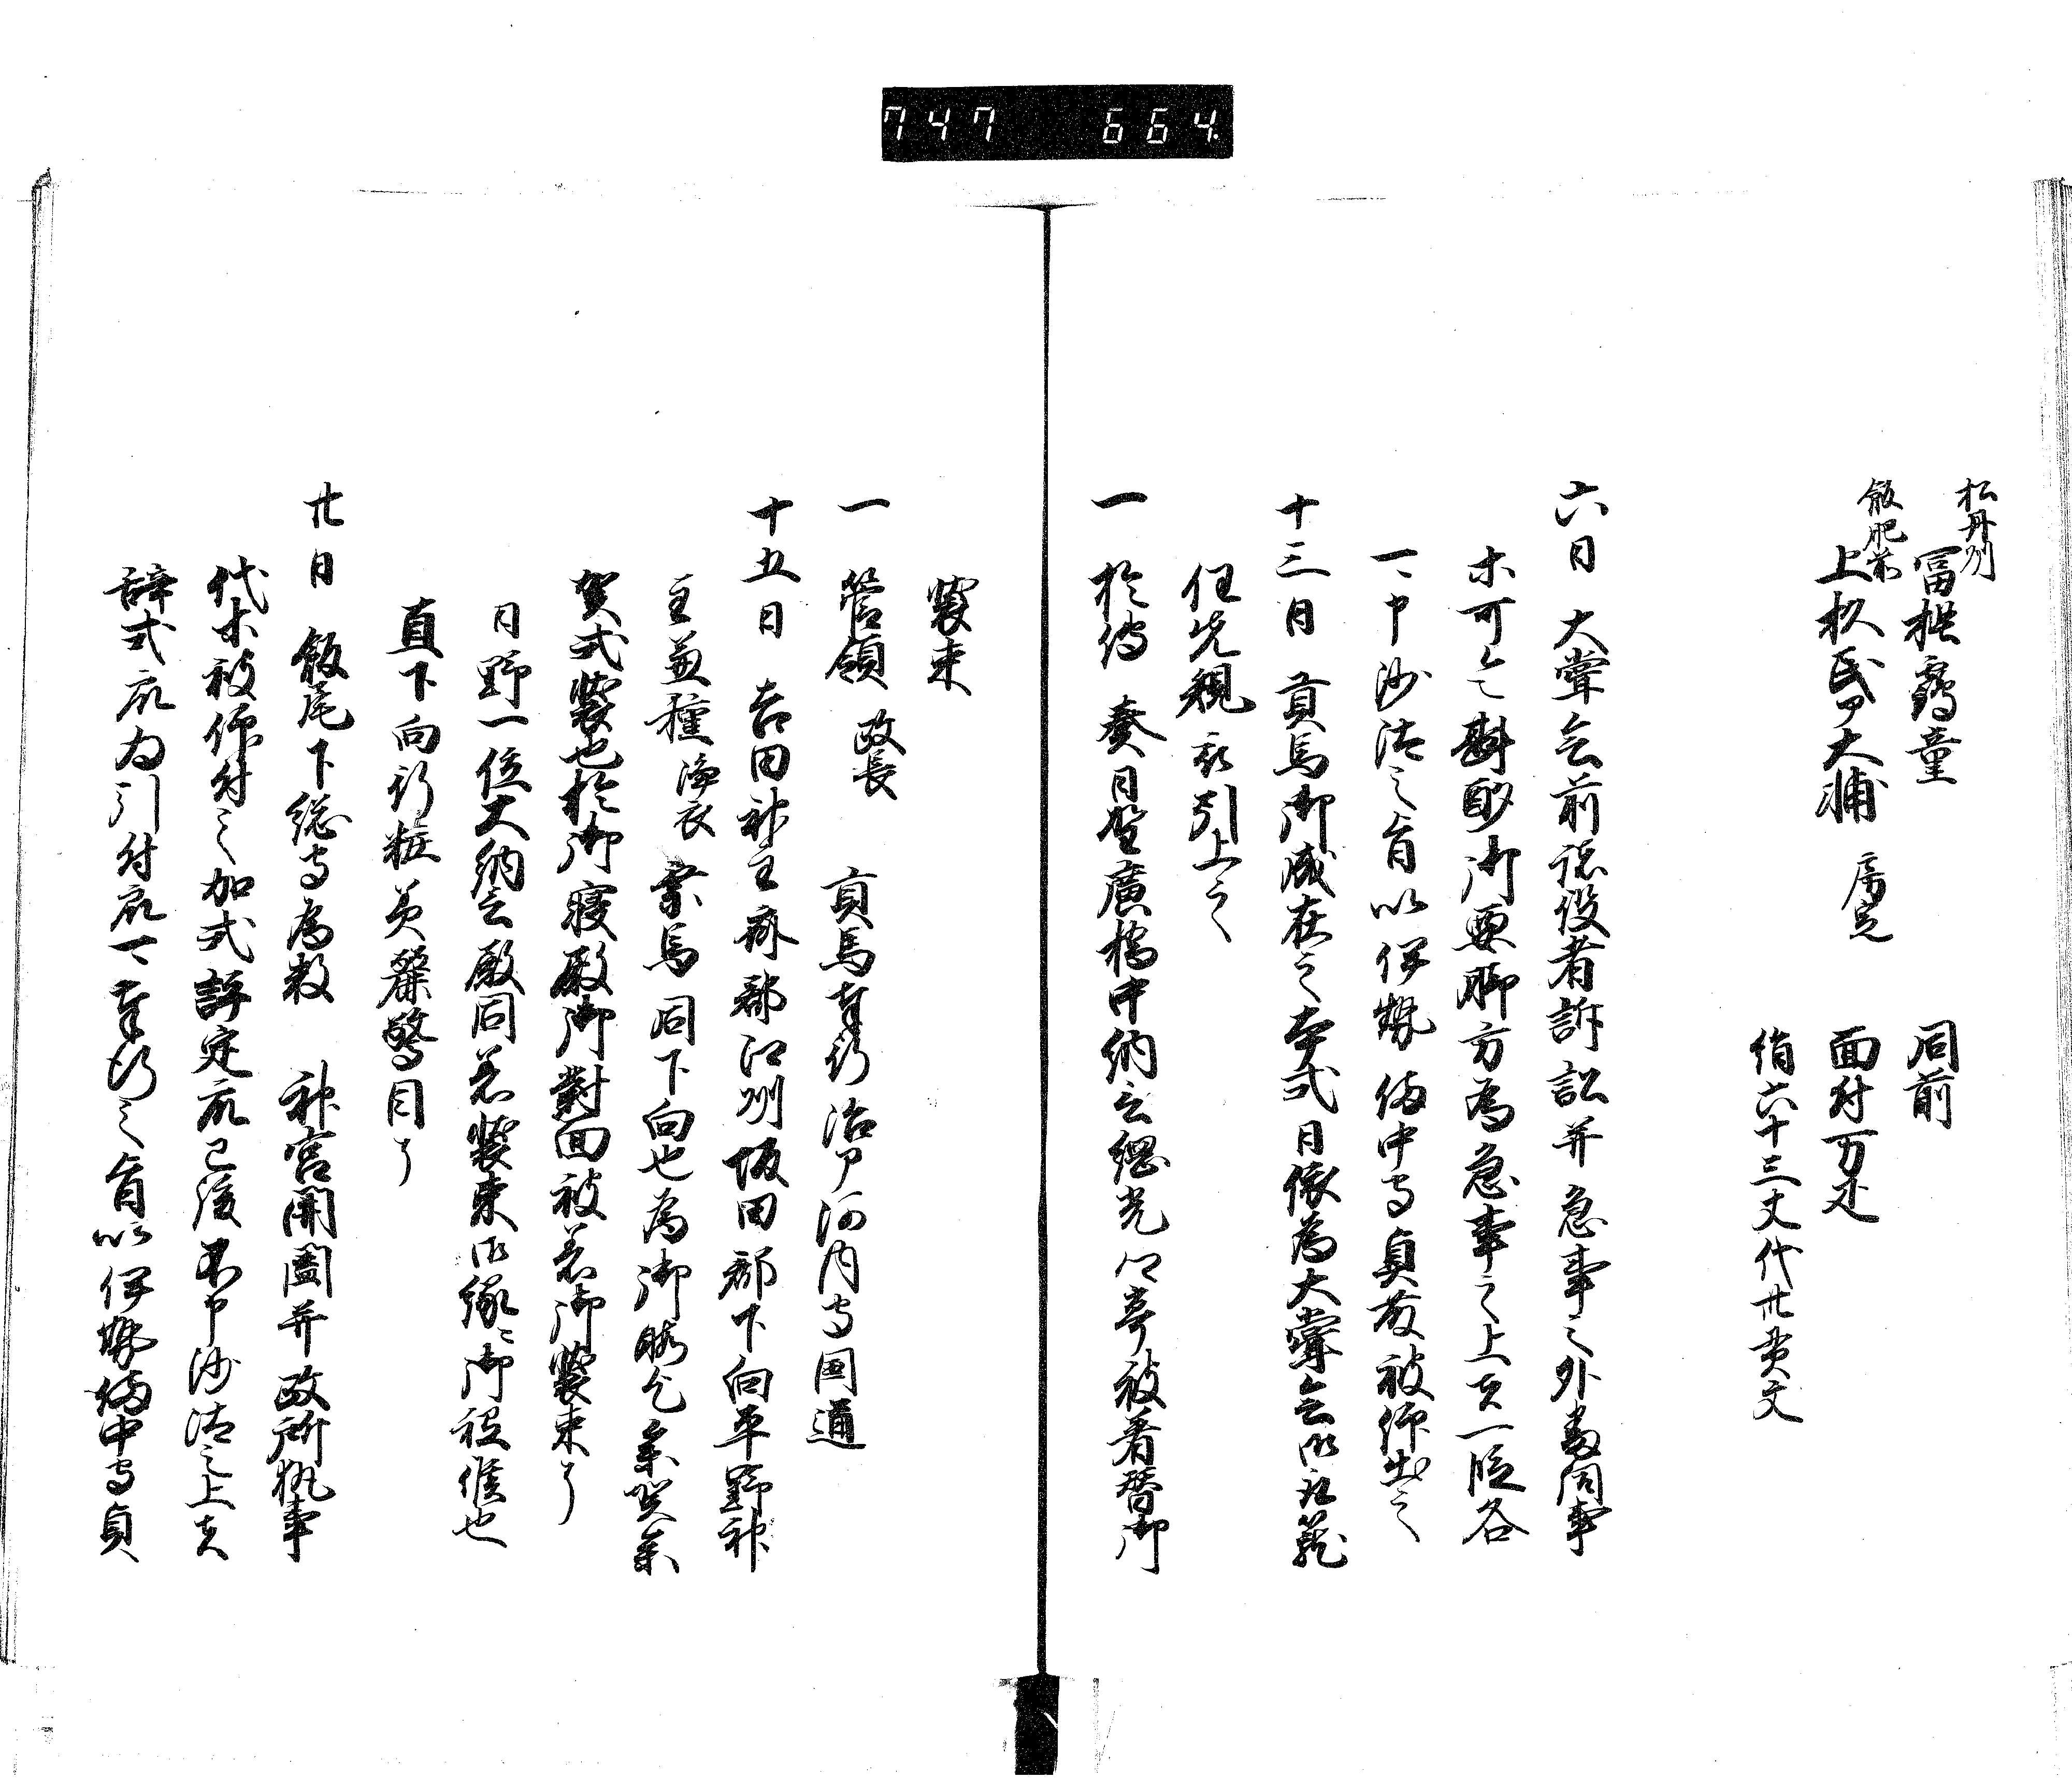 747 664
松丹州
冨樫鶴童 同前
飯肥前
上杉民部大輔 房定 面付万疋
絹六十三丈代廿貫文
六日 大嘗会前諸役者訴訟并急事之外万同事
等可令斟酌御要脚方為急事之上者一段各
可申沙汰之旨以伊勢備中守貞藤被仰出之
十三日 貢馬御成在之本式日依為大嘗会
任先規被引上之
一 於傍 奏日野廣橋中納言綱光卿亭被着替御
装束
一 管領 政長 貢馬奉行治部河内守国通
十五日 吉田神主 兼郡江州坂田郡下向平野神
主兼種 浄衣 乗馬同下向也為御暇乞参賀参
賀式装也於御寝殿御対面被着御装束了
日野一位大納言殿同着装束御縁御祗候也
直下向行粧美麗驚目了
廿日 飯尾下総守為数 神宮開闔并政所執事
代等被仰付之加式評定衆已後不申沙汰之上者
辞式衆為引付衆可奉行之旨以伊勢備中守貞